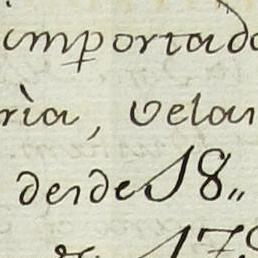 importado
ría, velan
desde 18,,
de 179